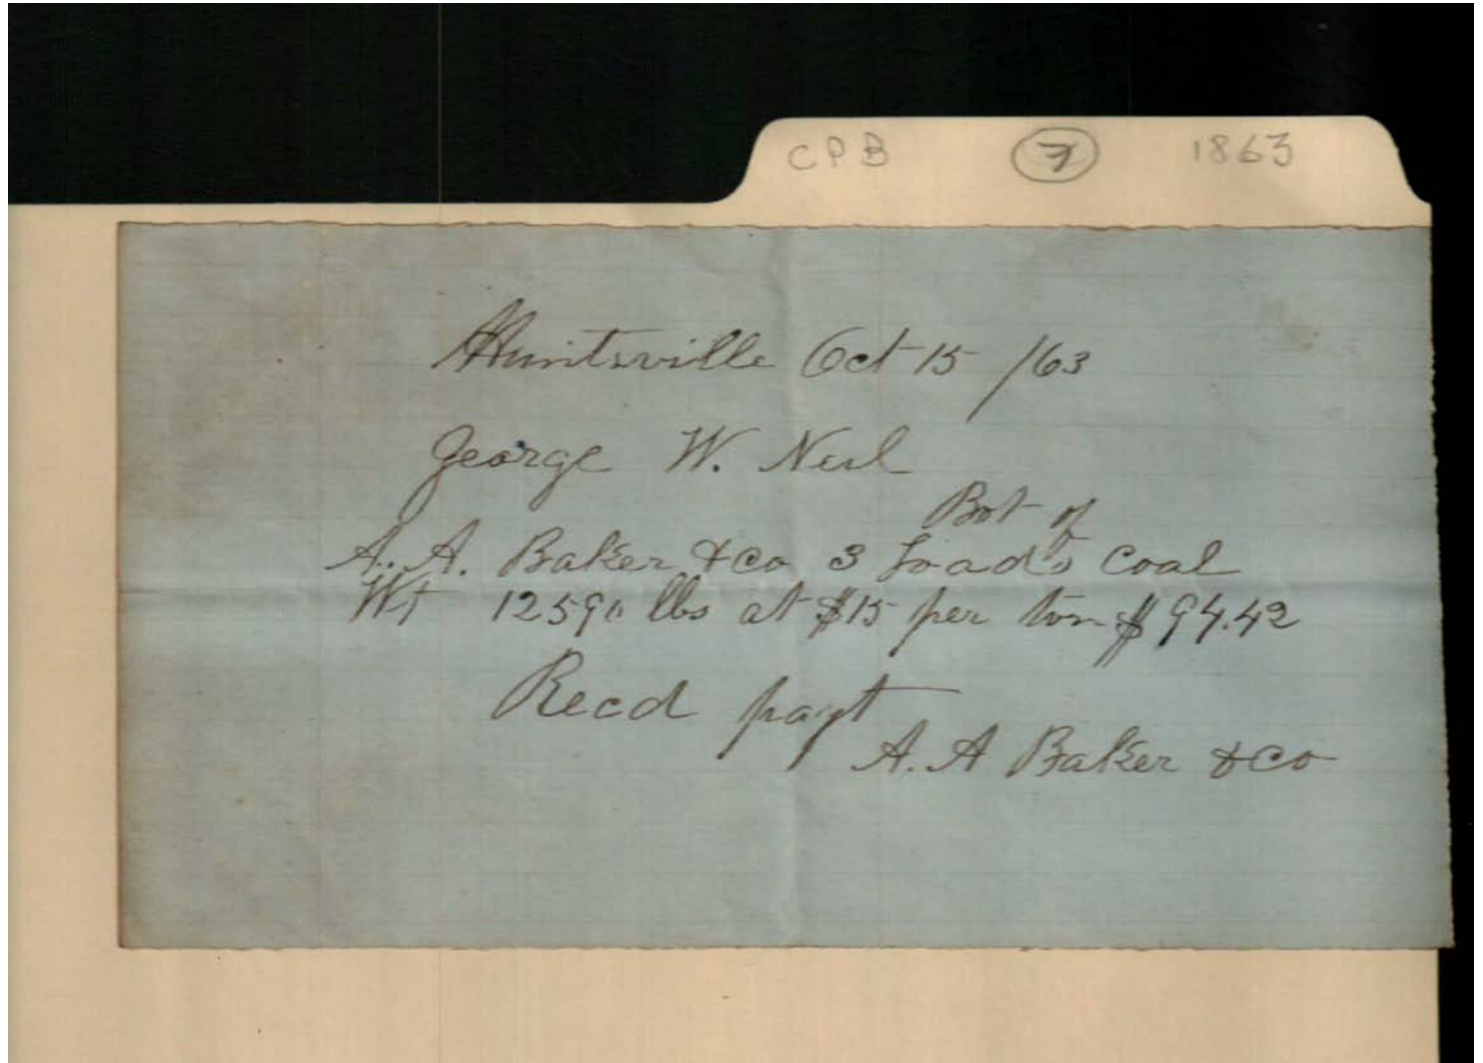 CPB 7 1863
Huntsville Oct 15 /63
George W. Neil
Bot of
A. A. Baker & Co 3 Loads Coal
Wt 12590 lbs at $15 per ton $94.42
Recd payt
A. A Baker & Co